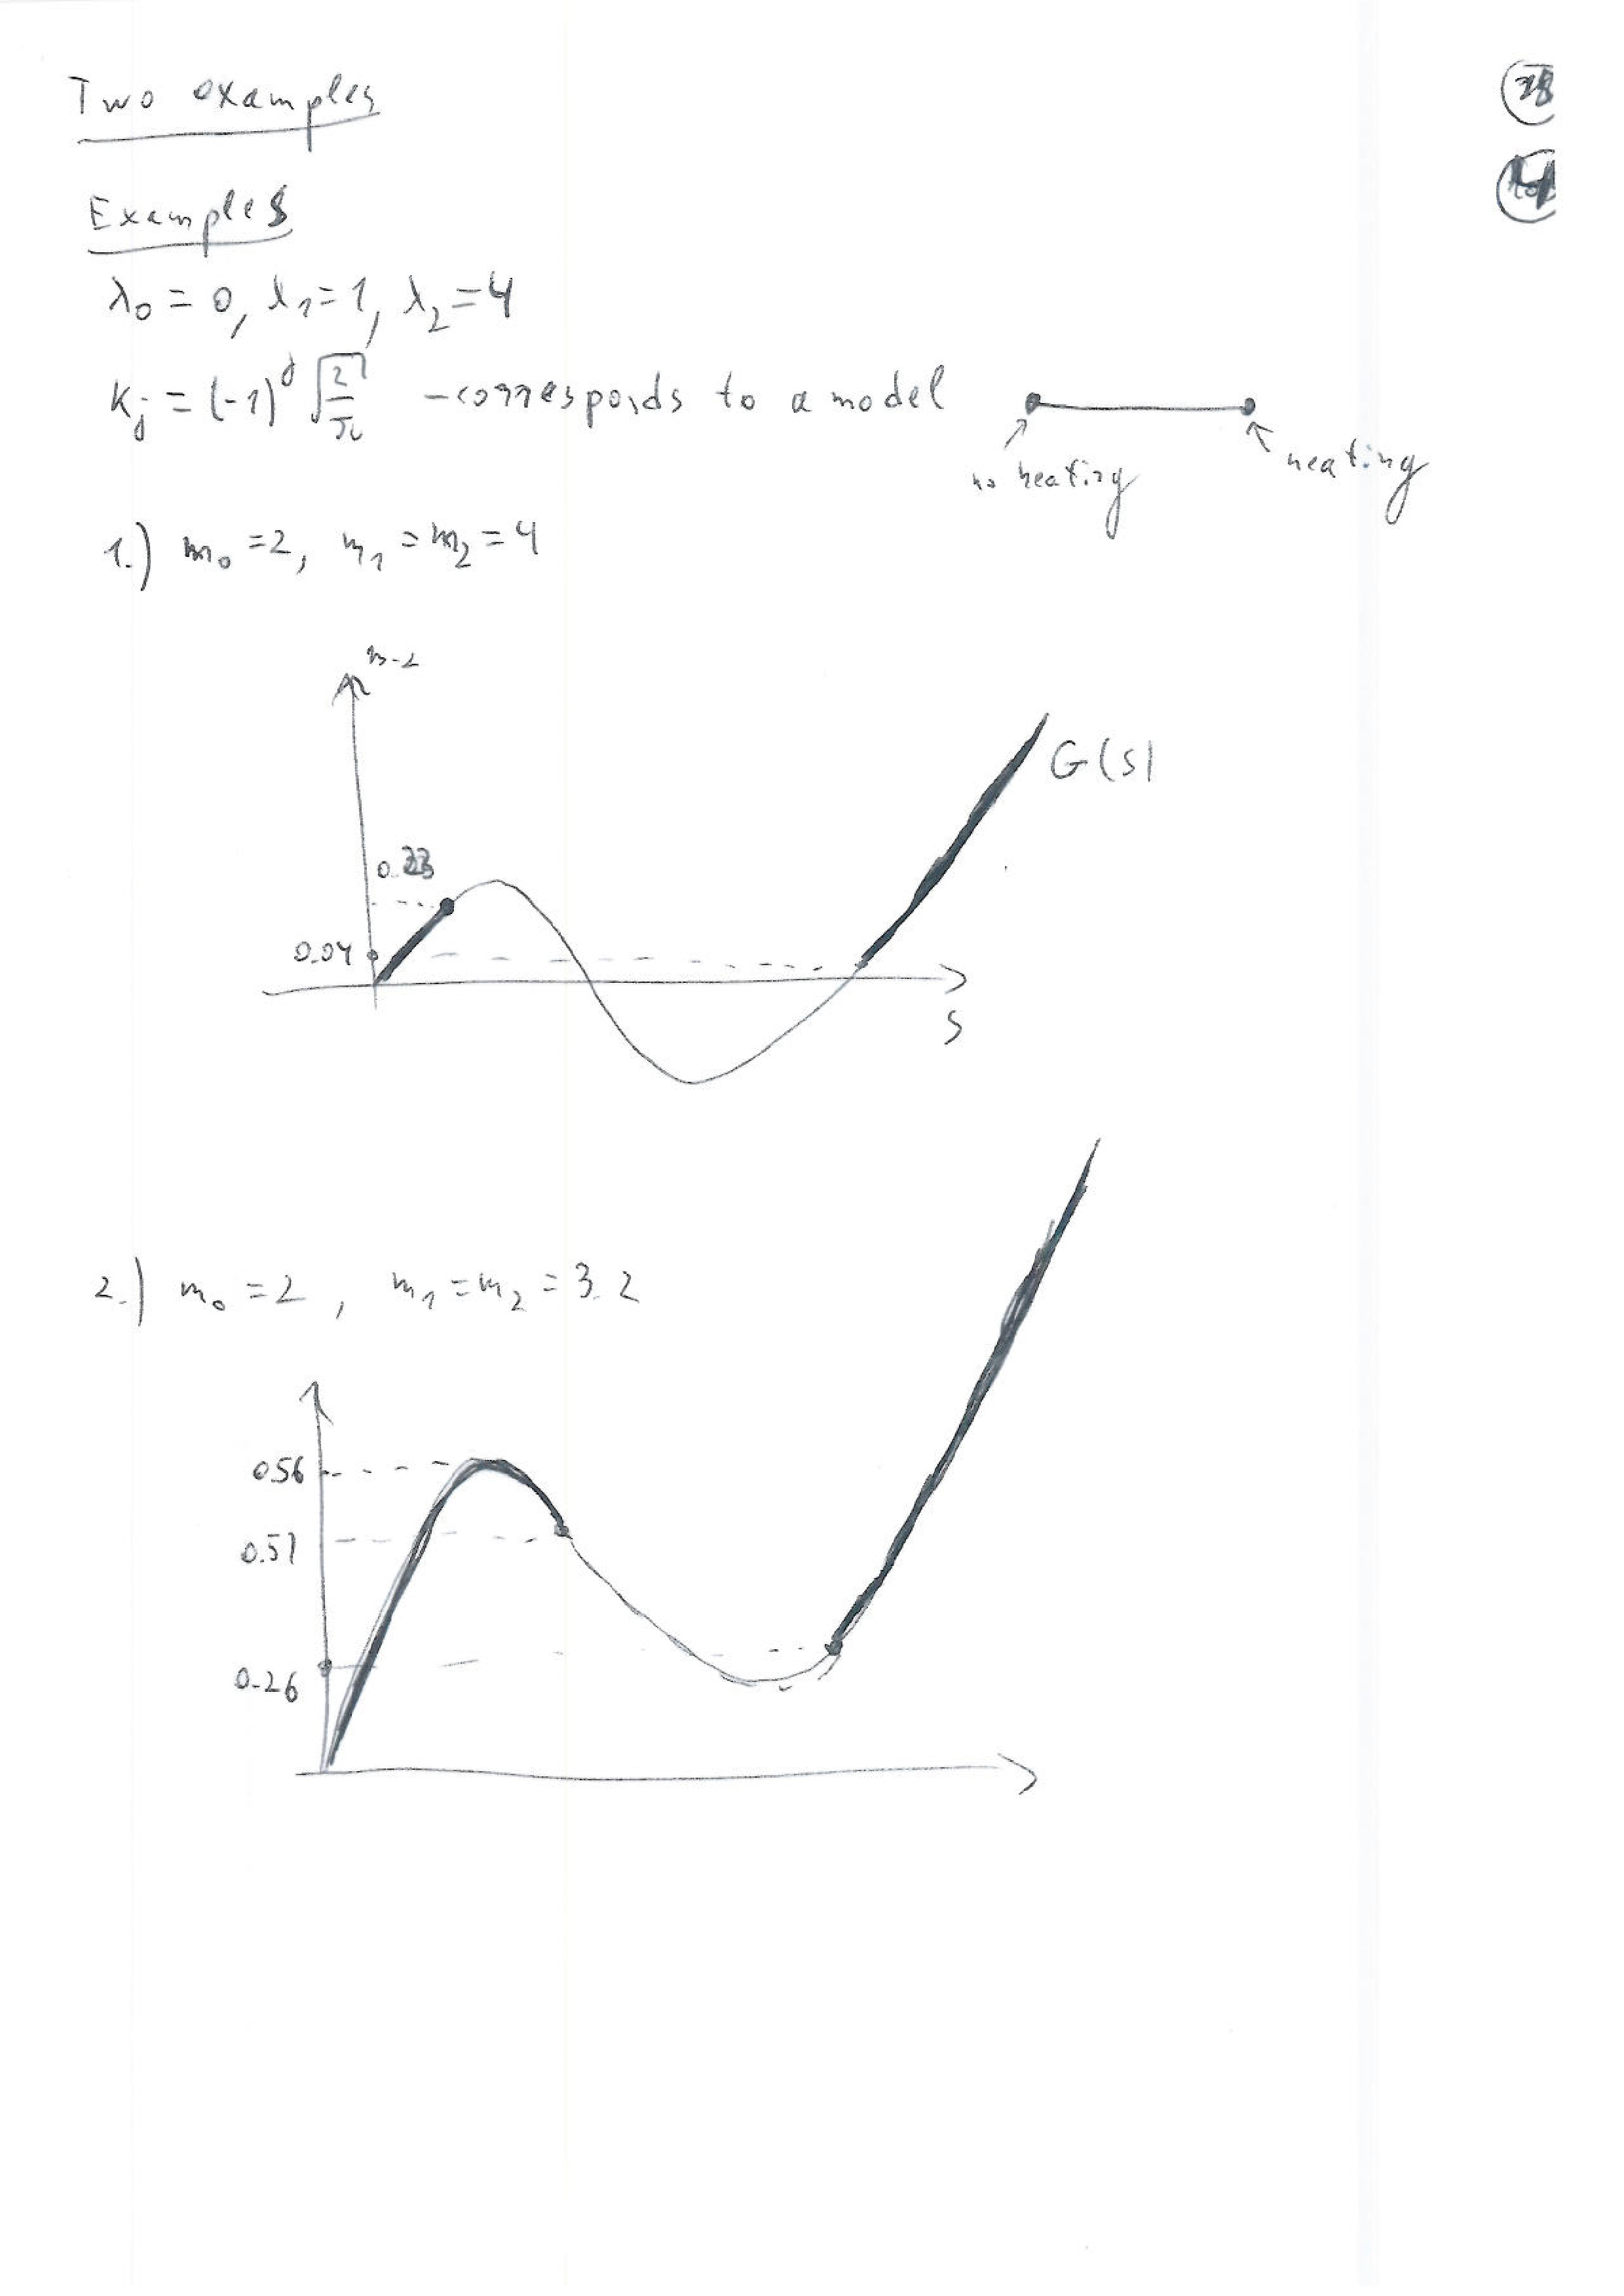 Two examples
28
Examples
λ₀ = 0, λ₁ = 1, λ₂ = 4
Kⱼ = (-1)ʲ √(2/π) - corresponds to a model
no heating
heating
1.) m₀ = 2, m₁ = m₂ = 4
G(s)
0.33
0.04
s
2.) m₀ = 2, m₁ = m₂ = 3.2
0.56
0.51
0.26